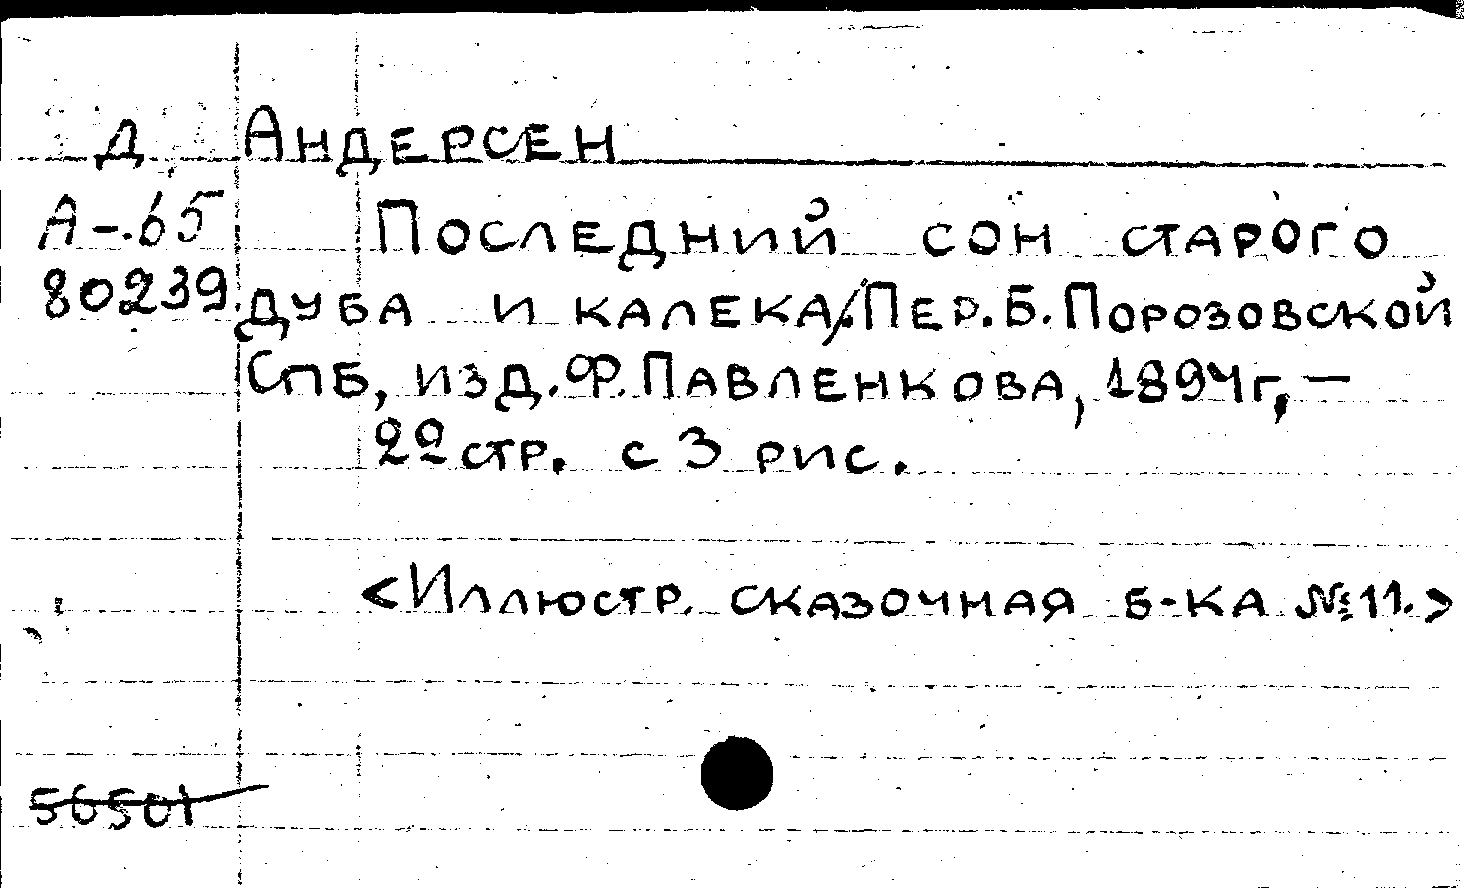 Д Андерсен
А-65 Последний сон старого
80239 дуба и калека/.Пер.Б.Порозовской
Спб, изд.Ф.Павленкова, 1894г,—
22 стр. с 3 рис.
<Иллюстр. сказочная б-ка №11.>
56501